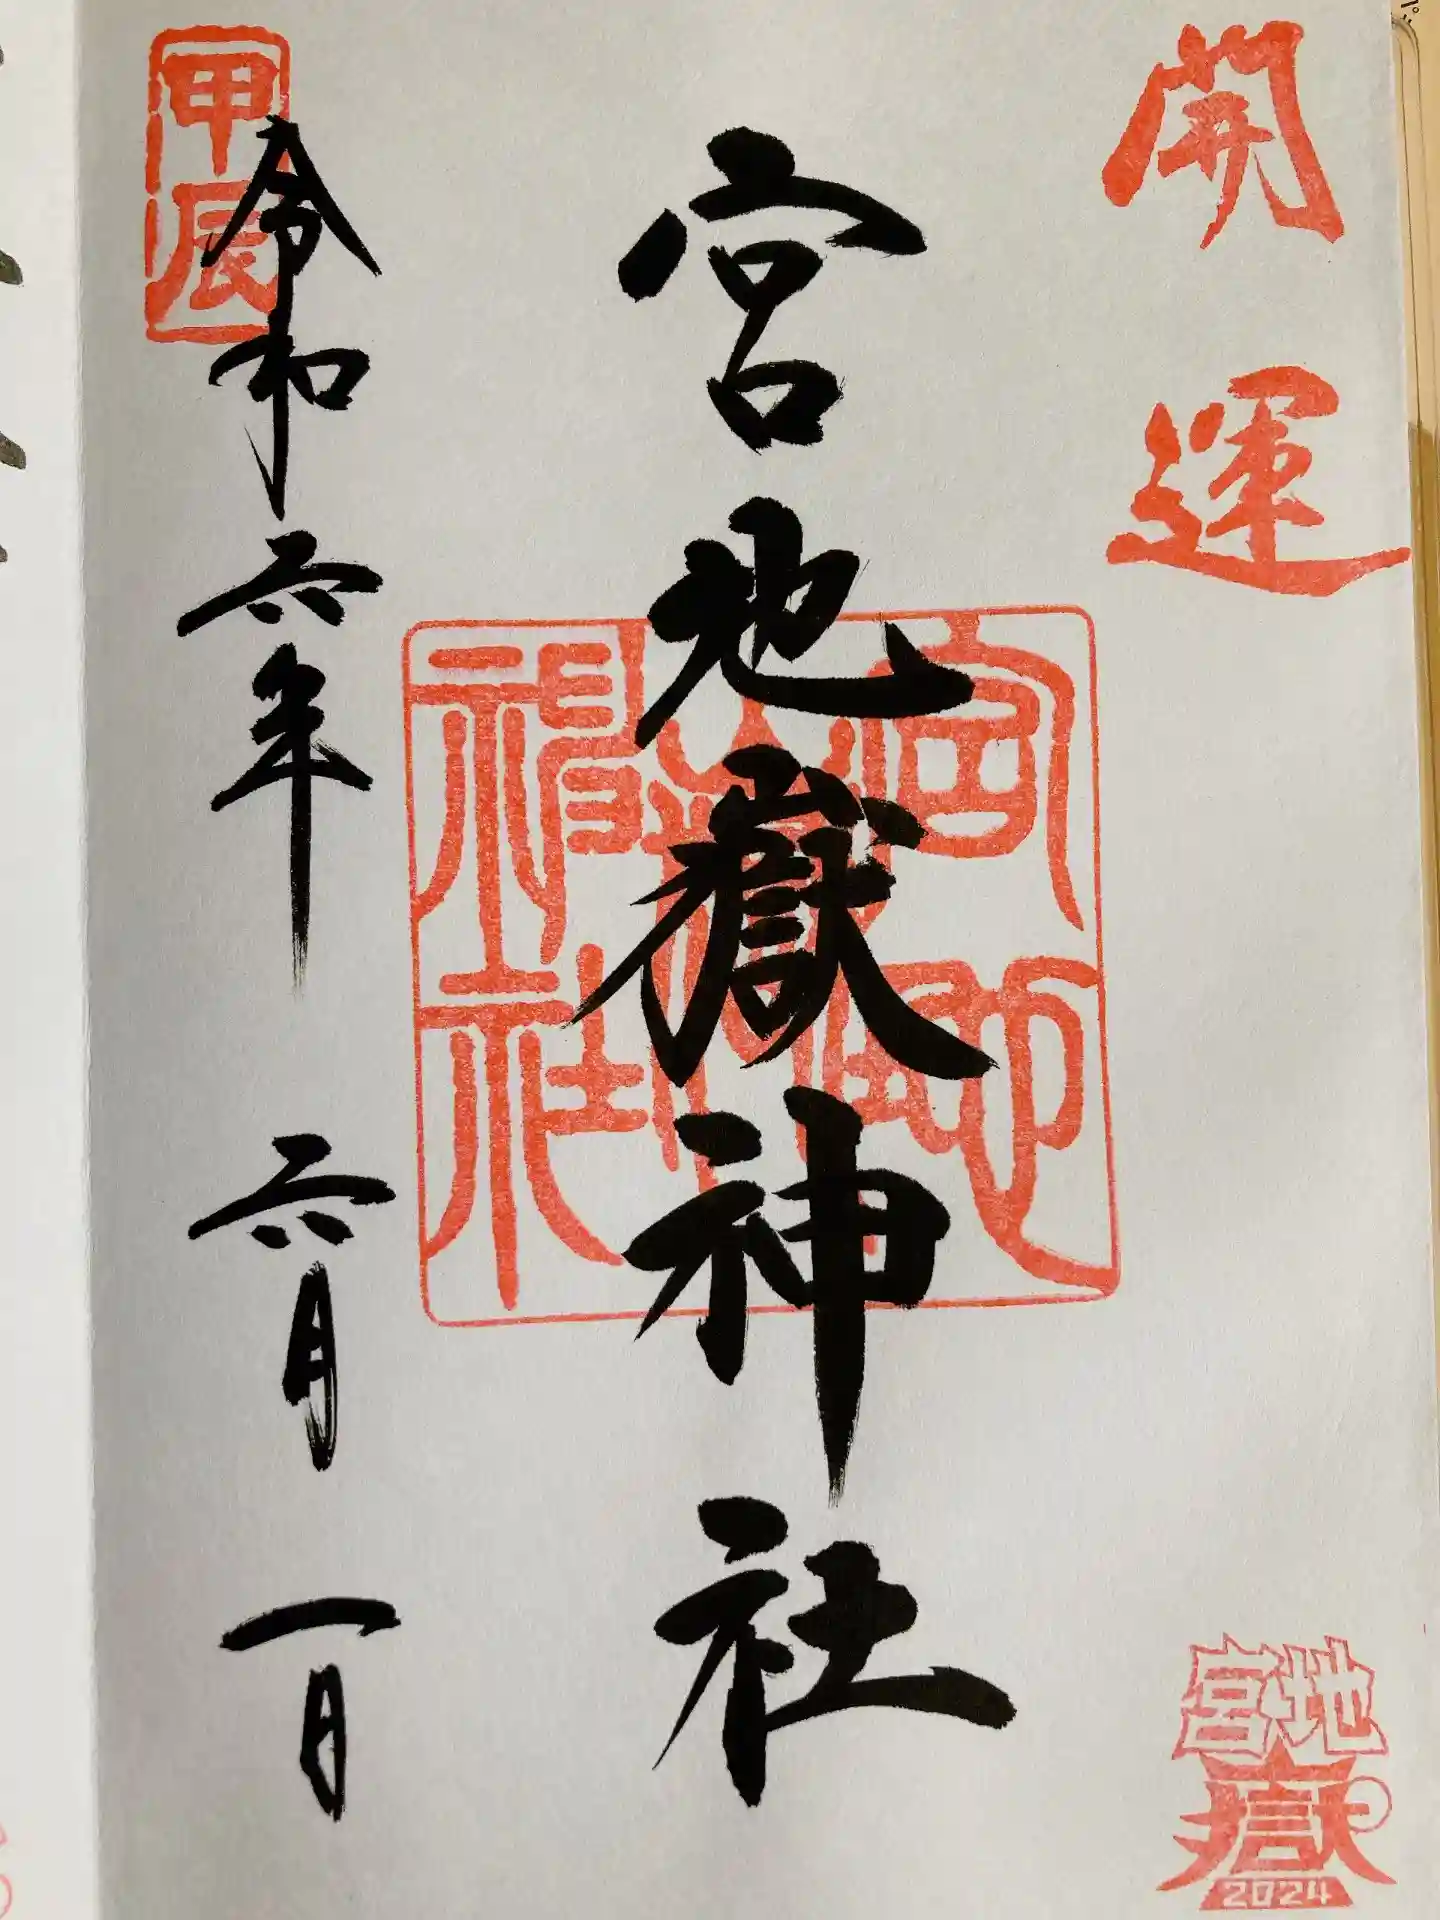 開運
宮地嶽
2024
宮地嶽神社
宮地嶽神社
令和六年 六月 一日
甲辰